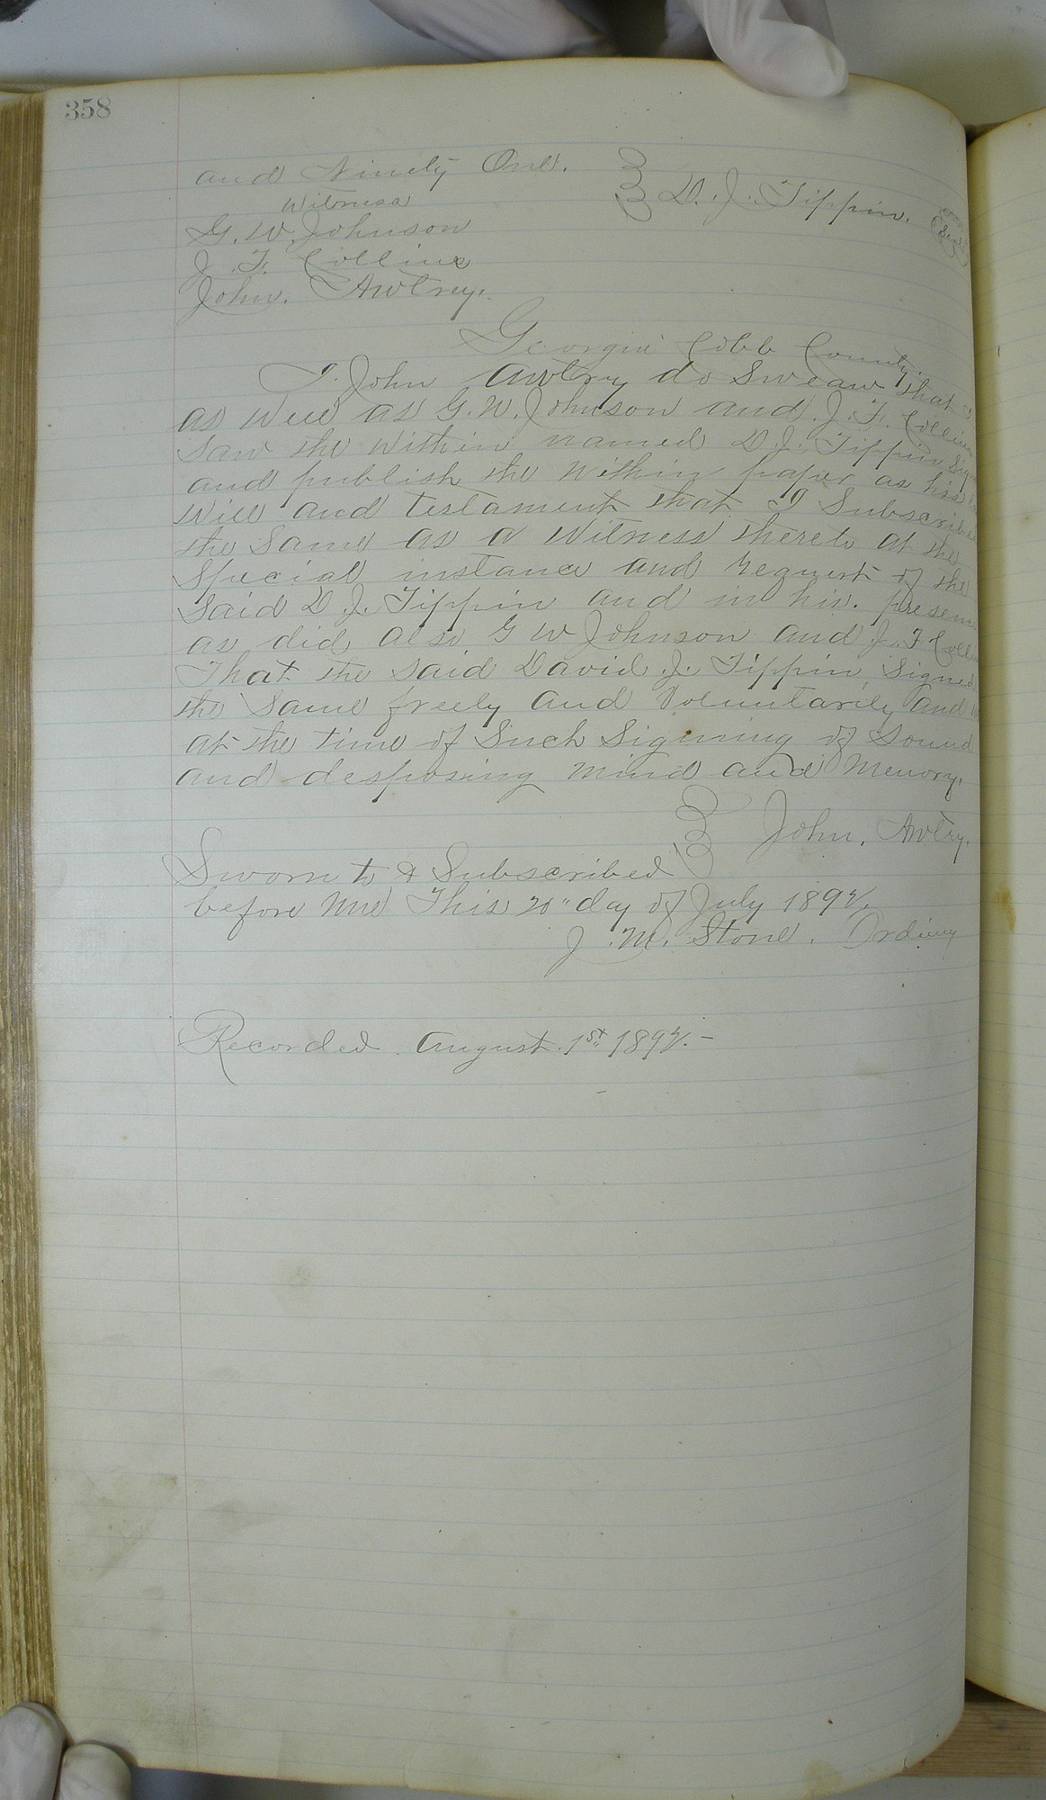 358
and Ninety One.
Witness
D. J. Tippin. (Seal)
G. W. Johnson
J. F. Collins
John. Awtrey.
Georgia Cobb County.
I. John Awtry do Swear that
as well as G. W. Johnson and J. F. Collins
Saw the within named D. J. Tippin Sign
and publish the within paper as his
Will and testament that I Subscribe
the Same as a Witness thereto at the
Special instance and request of the
Said D. J. Tippin and in his. presen
as did also G W Johnson and J. F Coll
That the said David J. Tippin, Signed
the Same freely and Voluntarily and
at the time of Such Signing of Sound
and desposing mind and Memory.
John. Awtry.
Sworn to & Subscribed
before me This 20" day of July 1892.
J. M. Stone. Ordinary
Recorded August. 1st 1892.-